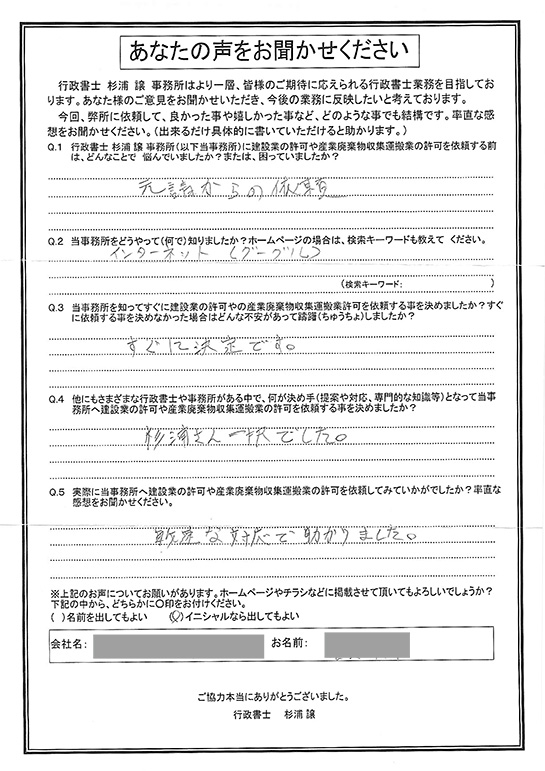 あなたの声をお聞かせください
行政書士 杉浦 譲 事務所はより一層、皆様のご期待に応えられる行政書士業務を目指してお
ります。あなた様のご意見をお聞かせいただき、今後の業務に反映したいと考えております。
今回、弊所に依頼して、良かった事や嬉しかった事など、どのような事でも結構です。率直な感
想をお聞かせください。（出来るだけ具体的に書いていただけると助かります。）
Q.1 行政書士 杉浦 譲 事務所(以下当事務所)に建設業の許可や産業廃棄物収集運搬業の許可を依頼する前
は、どんなことで 悩んでいましたか？または、困っていましたか？
元請からの依頼
Q.2 当事務所をどうやって(何で)知りましたか？ホームページの場合は、検索キーワードも教えて ください。
インターネット (グーグル)
(検索キーワード: )
Q.3 当事務所を知ってすぐに建設業の許可やの産業廃棄物収集運搬業許可を依頼する事を決めましたか？すぐ
に依頼する事を決めなかった場合はどんな不安があって躊躇(ちゅうちょ)しましたか？
すぐに決定です。
Q.4 他にもさまざまな行政書士や事務所がある中で、何が決め手(提案や対応、専門的な知識等)となって当事
務所へ建設業の許可や産業廃棄物収集運搬業の許可を依頼する事を決めましたか？
杉浦さん一択でした。
Q.5 実際に当事務所へ建設業の許可や産業廃棄物収集運搬業の許可を依頼してみていかがでしたか？率直な
感想をお聞かせください。
な対応で助かりました。
※上記のお声についてお願いがあります。ホームページやチラシなどに掲載させて頂いてもよろしいでしょうか？
下記の中から、どちらかに〇印をお付けください。
( )名前を出してもよい (○)イニシャルなら出してもよい
会社名: お名前:
ご協力本当にありがとうございました。
行政書士 杉浦 譲